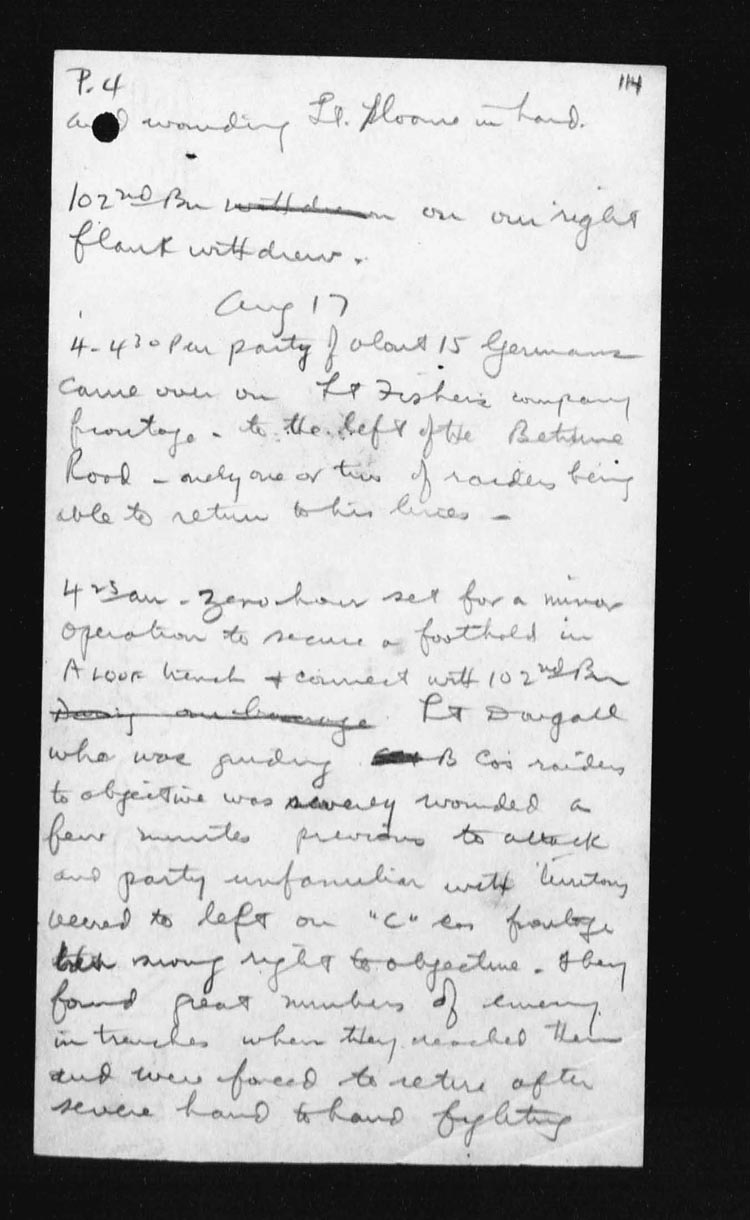 P. 4
114
and wounding Lt. Sloane in hand.
102nd Bn withdrawn on our right
flank withdrew.
Aug 17
4 - 430 Pm party of about 15 Germans
came over on Lt Fishers company
frontage - to the left of the Bethune
Road - only one or two of raiders being
able to return to his lines -
4 25 am - Zero hour set for a minor
operation to secure a foothold in
ALOOF trench & connect with 102nd Bn
During our barrage Lt Dougall
who was guiding B Co's raiders
to objective was severely wounded a
few minutes previous to attack
and party unfamiliar with territory
veered to left on "C" cos frontage
swung right to objective. They
found great numbers of enemy
in trenches when they reached them
and were forced to retire after
severe hand to hand fighting